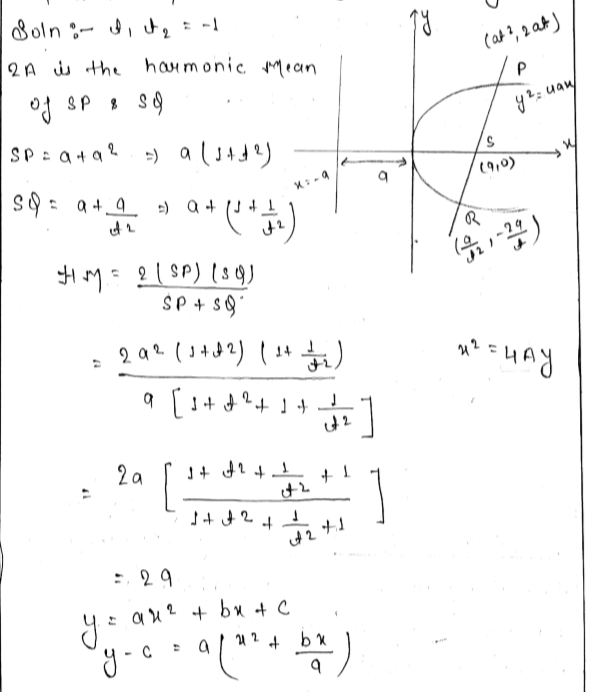 Soln :- t₁ t₂ = -1
2A is the harmonic Mean
of SP & SQ
SP = a + a² => a (1+t²)
SQ = a + a/t² => a + (1 + 1/t²)
HM = 2 (SP) (SQ) / SP + SQ
= 2a² (1+t²) (1+ 1/t²) / a [1+t²+1+ 1/t²]
= 2a [1+ t² + 1/t² + 1 / 1+t² + 1/t² +1]
= 2a
y = ax² + bx + c
y-c = a (x² + bx/a)
y
(at², 2at)
P
y²=4ax
S
x
(a,0)
x=-a
a
R
(a/t², -2a/t)
x² = 4Ay